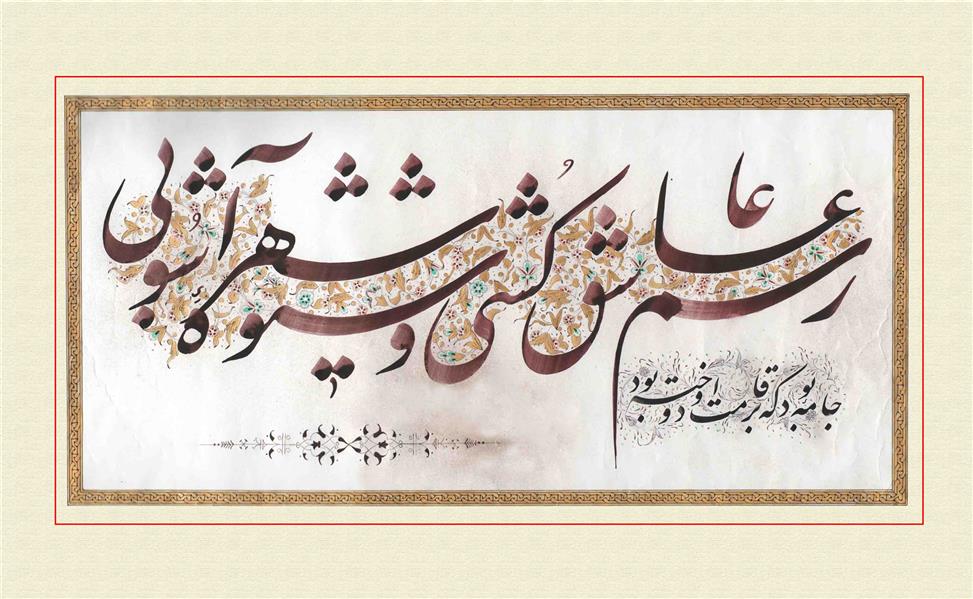 رسم عاشق کشی و شیوه شهر آشوبی
جامه بود که بر قامت او دوخته بود